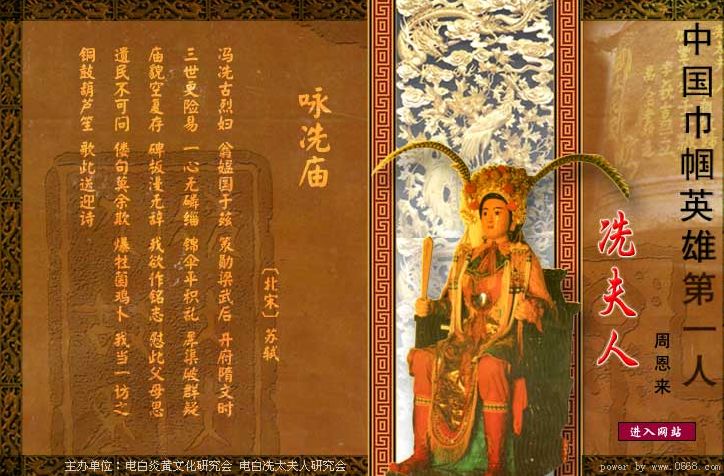 咏冼庙
〔北宋〕苏轼
冯冼古烈妇 翁媪国于兹 策勋梁武后 开府隋文时
三世更险易 一心无磷缁 锦伞平积乱 犀渠破群疑
庙貌空复存 碑板漫无辞 我欲作铭志 慰此父母思
遗民不可问 偻句莫余欺 爆牲菌鸡卜 我当一访之
铜鼓葫芦笙 歌此送迎诗
中国巾帼英雄第一人
冼夫人
周恩来
进入网站
主办单位：电白炎黄文化研究会 电白冼太夫人研究会
power by www.0668.com